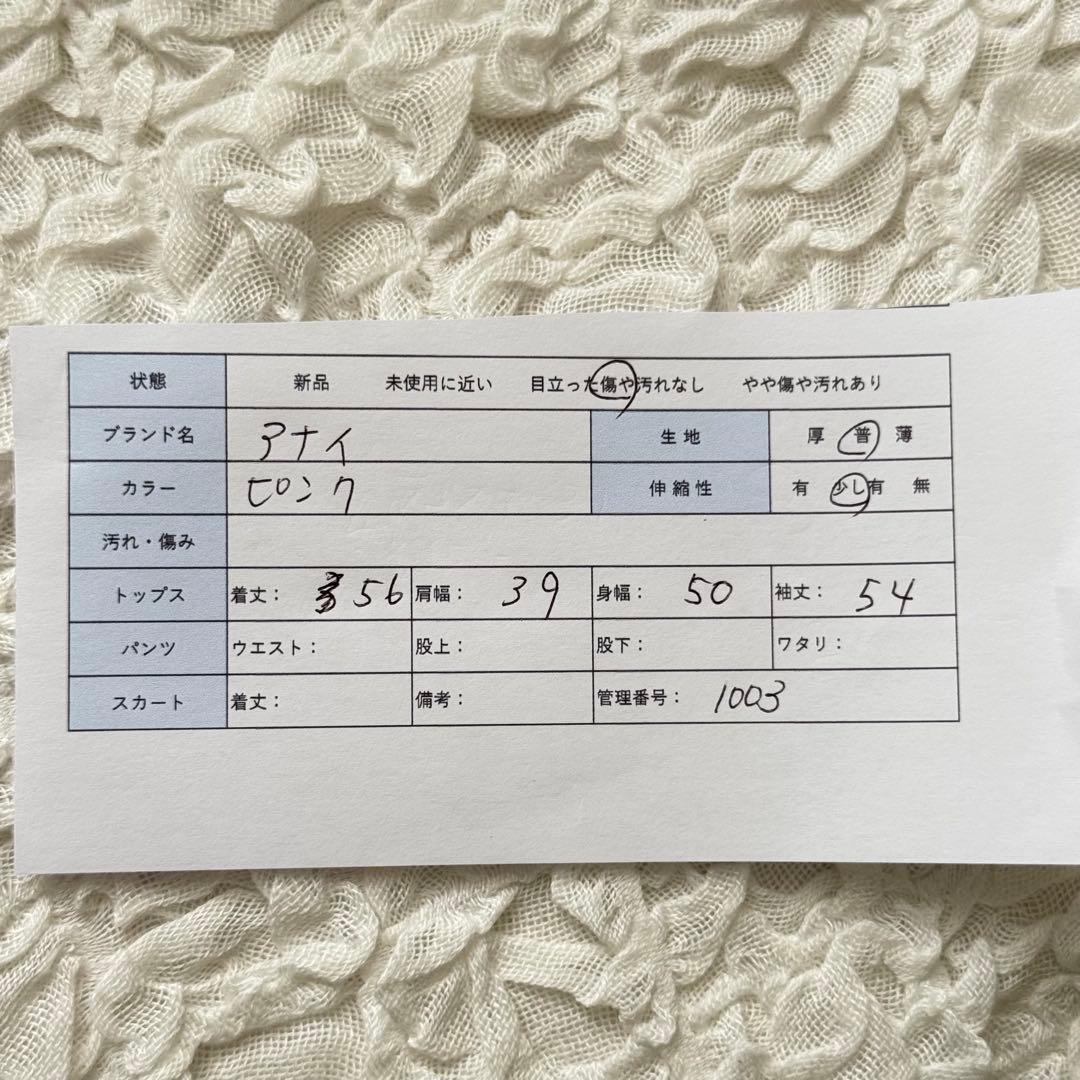 状態 新品 未使用に近い 目立った傷や汚れなし やや傷や汚れあり
ブランド名 アナイ 生地 厚 普 薄
カラー ピンク 伸縮性 有 少し有 無
汚れ・傷み
トップス 着丈： 56 肩幅： 39 身幅： 50 袖丈： 54
パンツ ウエスト： 股上： 股下： ワタリ：
スカート 着丈： 備考： 管理番号： 1003